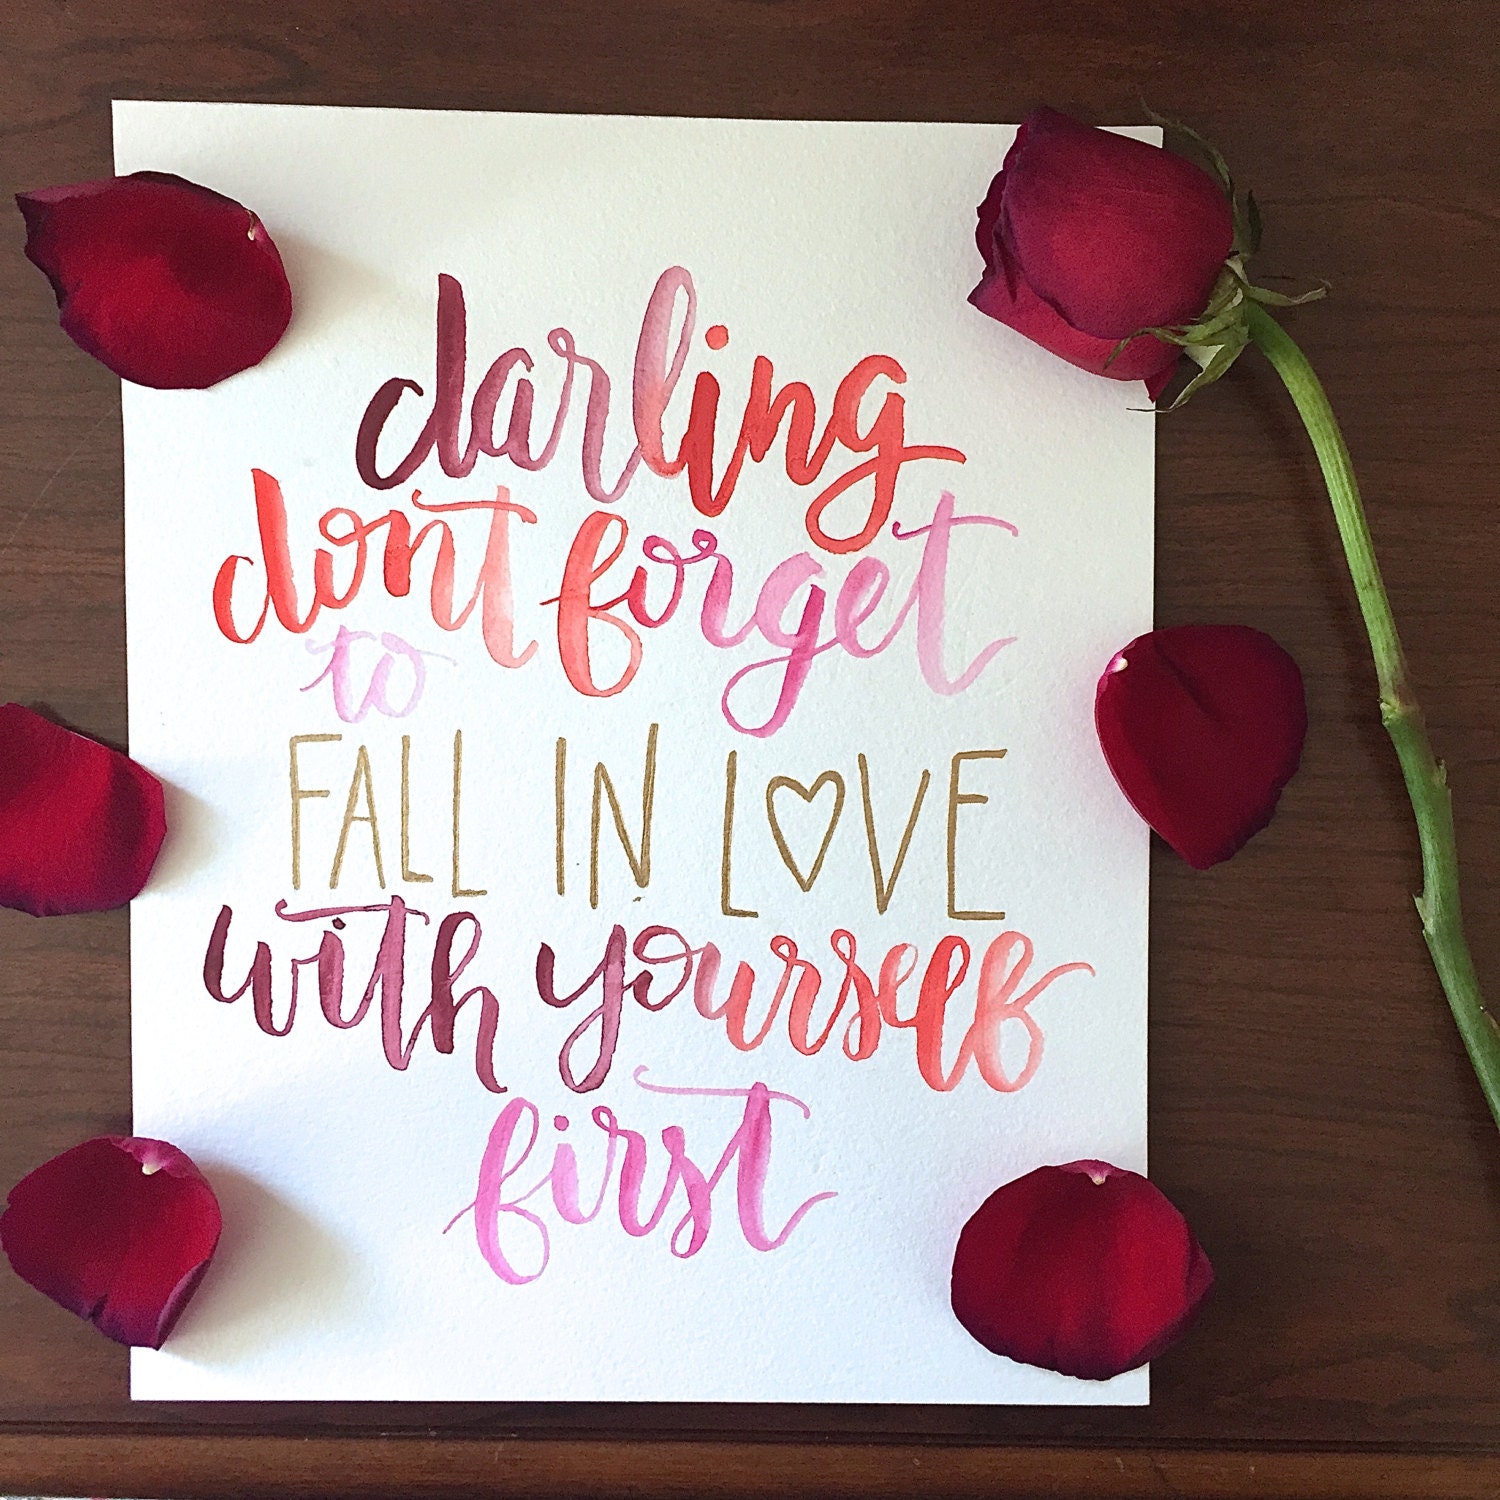 darling
dont forget
to
FALL IN LOVE
with yourself
first